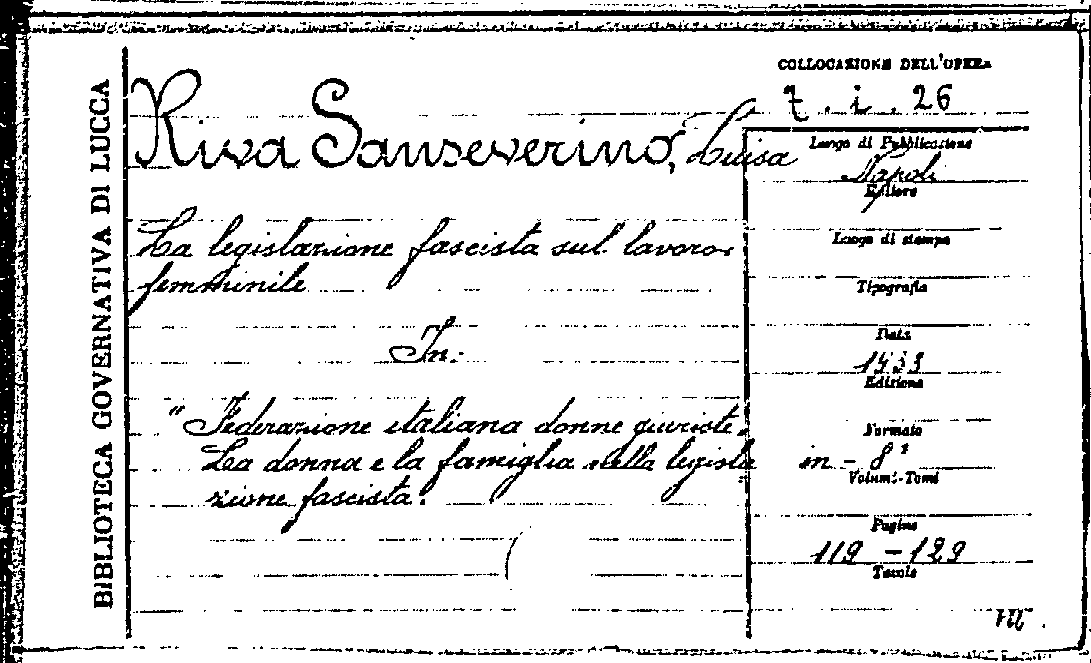 BIBLIOTECA GOVERNATIVA DI LUCCA
COLLOCAZIONE DELL'OPERA
7. i. 26
Riva Sanseverino, Luisa
La legislazione fascista sul lavoro
femminile
In:
"Federazione italiana donne giuriste.
La donna e la famiglia nella legisla
zione fascista.
Luogo di Pubblicazione
Napoli
Editore
Luogo di stampa
Tipografia
Data
Edizione
Formato
in - 8°
Volumi-Tomi
Pagine
119 - 129
Tavole